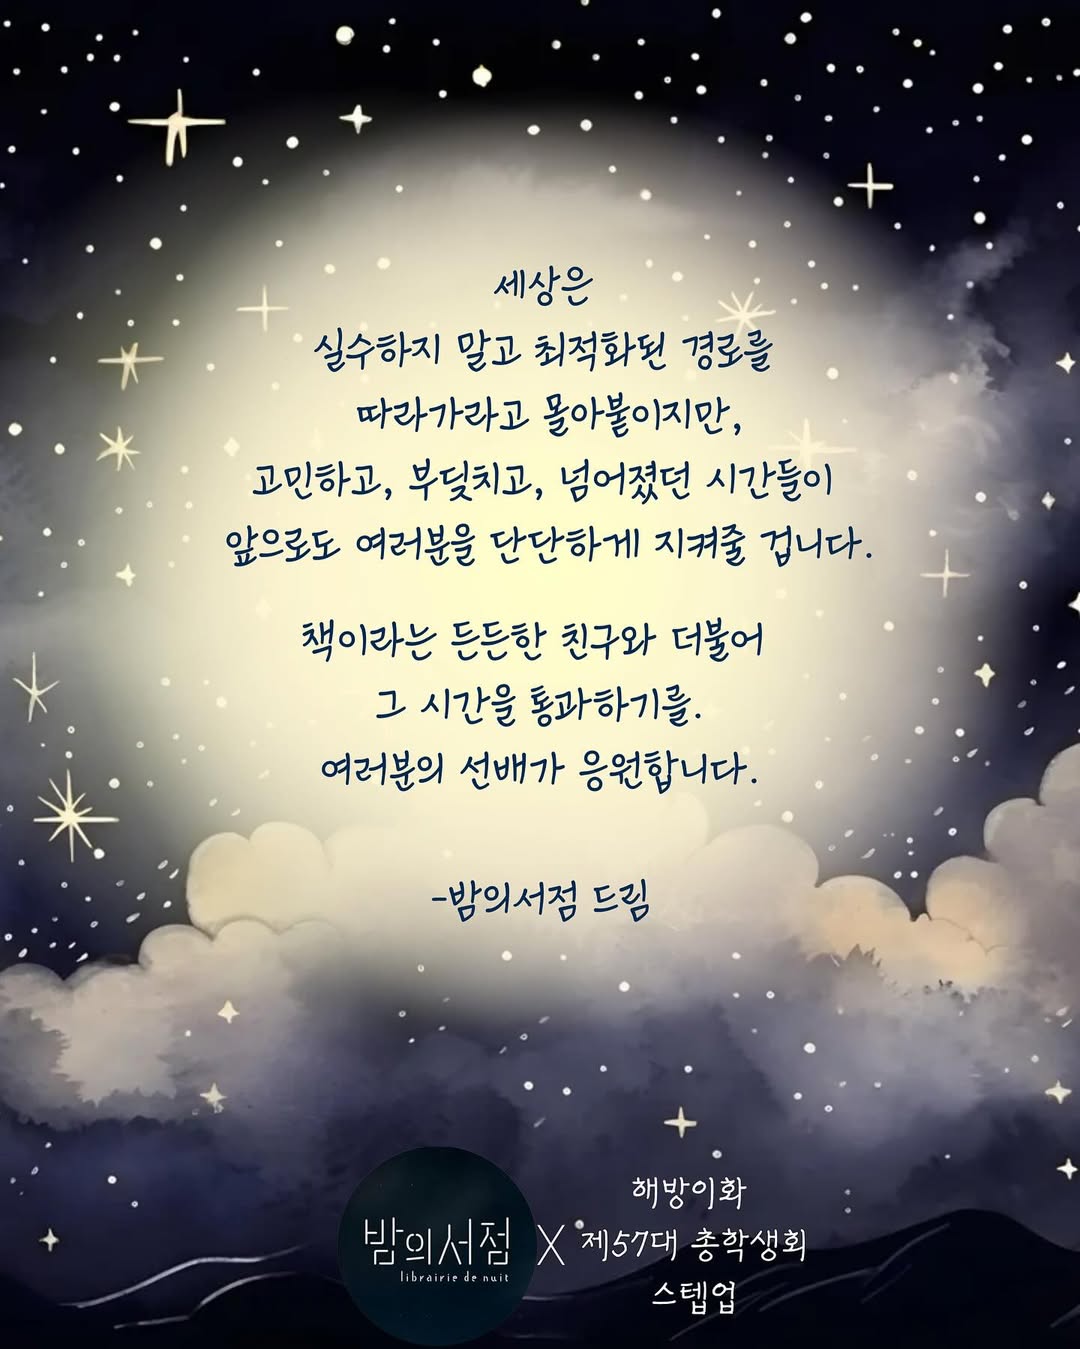 세상은
실수하지 말고 최적화된 경로를
따라가라고 몰아붙이지만,
고민하고, 부딪치고, 넘어졌던 시간들이
앞으로도 여러분을 단단하게 지켜줄 겁니다.
책이라는 든든한 친구와 더불어
그 시간을 통과하기를.
여러분의 선배가 응원합니다.
-밤의서점 드림
밤의서점
librairie de nuit
X
해방이화
제57대 총학생회
스텝업